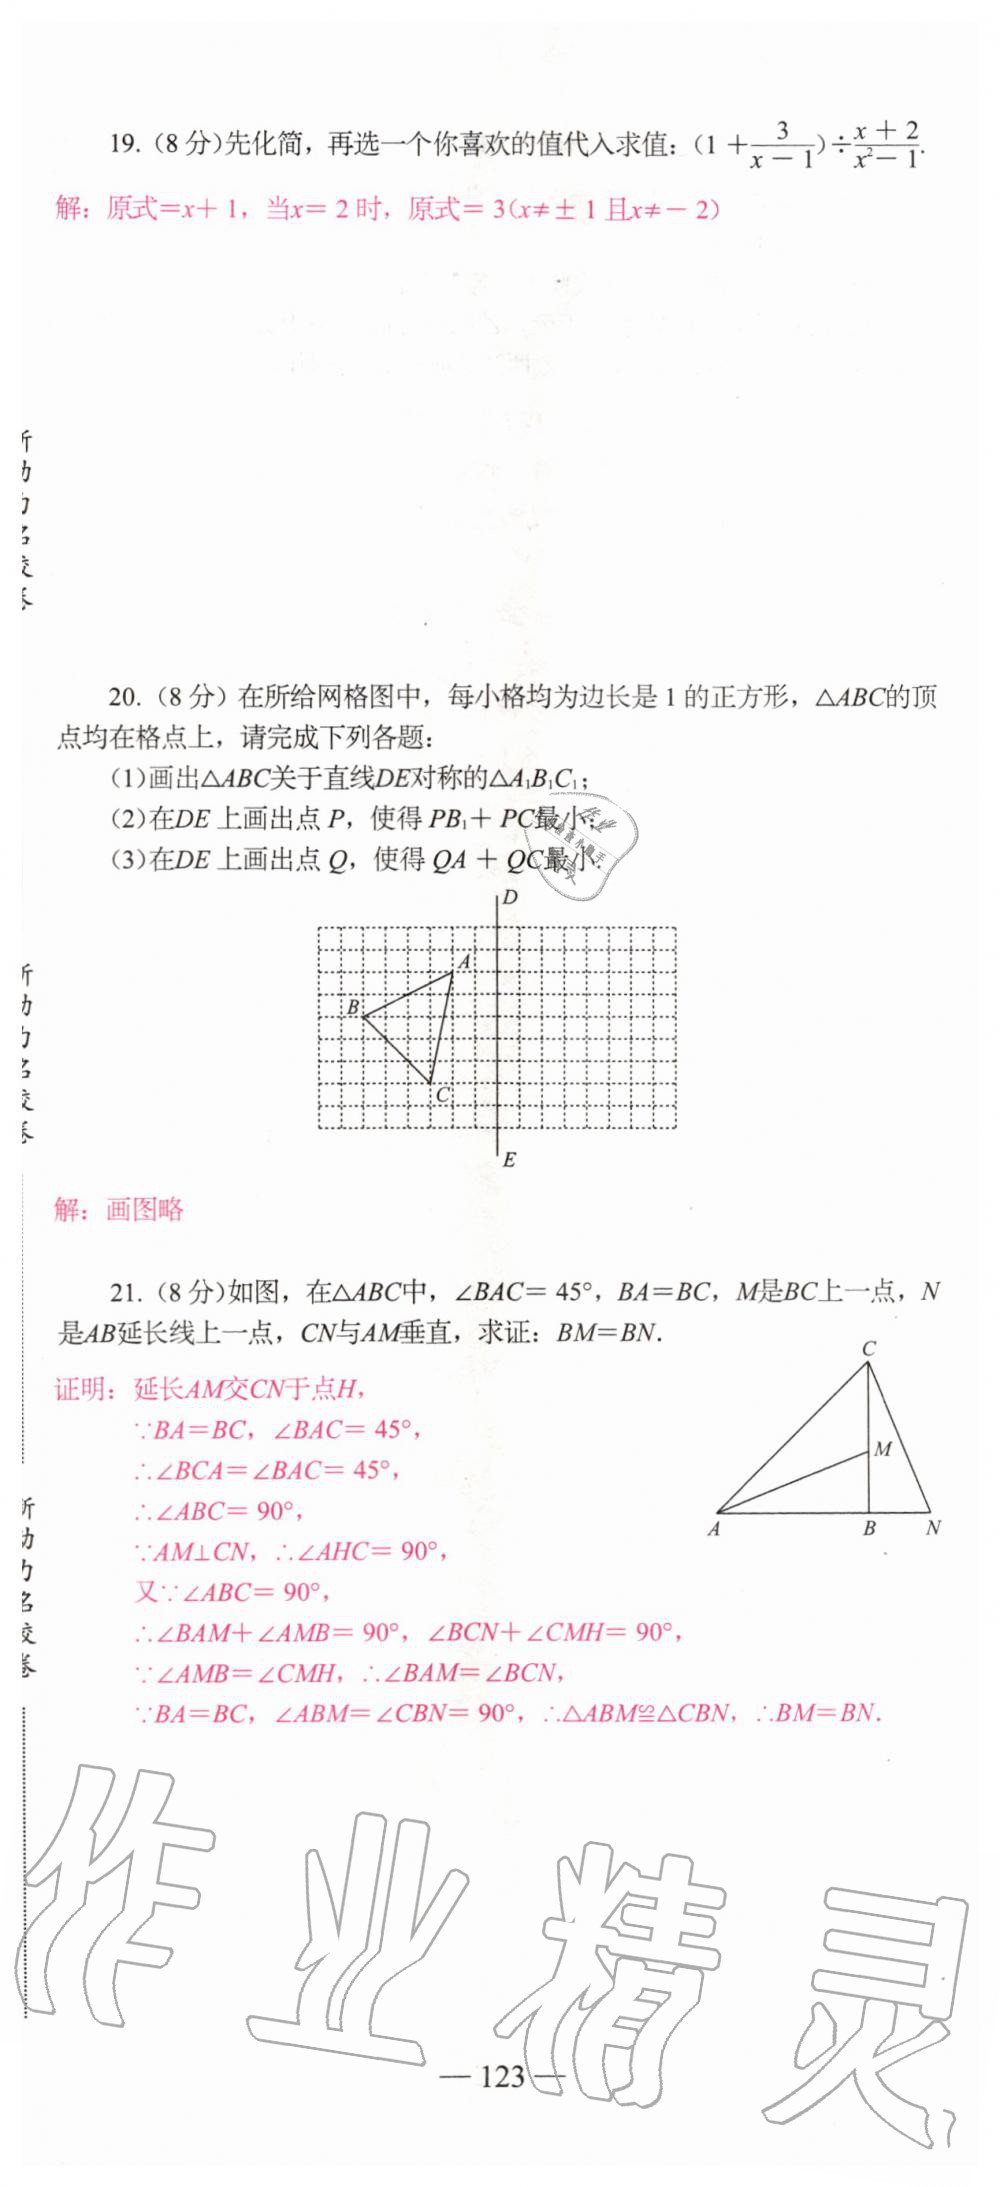 19.(8分)先化简，再选一个你喜欢的值代入求值：(1+3/(x-1))÷(x+2)/(x²-1).
解：原式=x+1，当x=2时，原式=3(x≠±1且x≠-2)
20.(8分)在所给网格图中，每小格均为边长是1的正方形，△ABC的顶
点均在格点上，请完成下列各题：
(1)画出△ABC关于直线DE对称的△A₁B₁C₁；
(2)在DE上画出点P，使得PB₁+PC最小；
(3)在DE上画出点Q，使得QA+QC最小.
D
A
B
C
E
解：画图略
21.(8分)如图，在△ABC中，∠BAC=45°，BA=BC，M是BC上一点，N
是AB延长线上一点，CN与AM垂直，求证：BM=BN.
证明：延长AM交CN于点H，
∵BA=BC，∠BAC=45°，
∴∠BCA=∠BAC=45°，
∴∠ABC=90°，
∵AM⊥CN，∴∠AHC=90°，
又∵∠ABC=90°，
∴∠BAM+∠AMB=90°，∠BCN+∠CMH=90°，
∵∠AMB=∠CMH，∴∠BAM=∠BCN，
∵BA=BC，∠ABM=∠CBN=90°，∴△ABM≌△CBN，∴BM=BN.
C
M
A
B
N
作业精灵
— 123 —